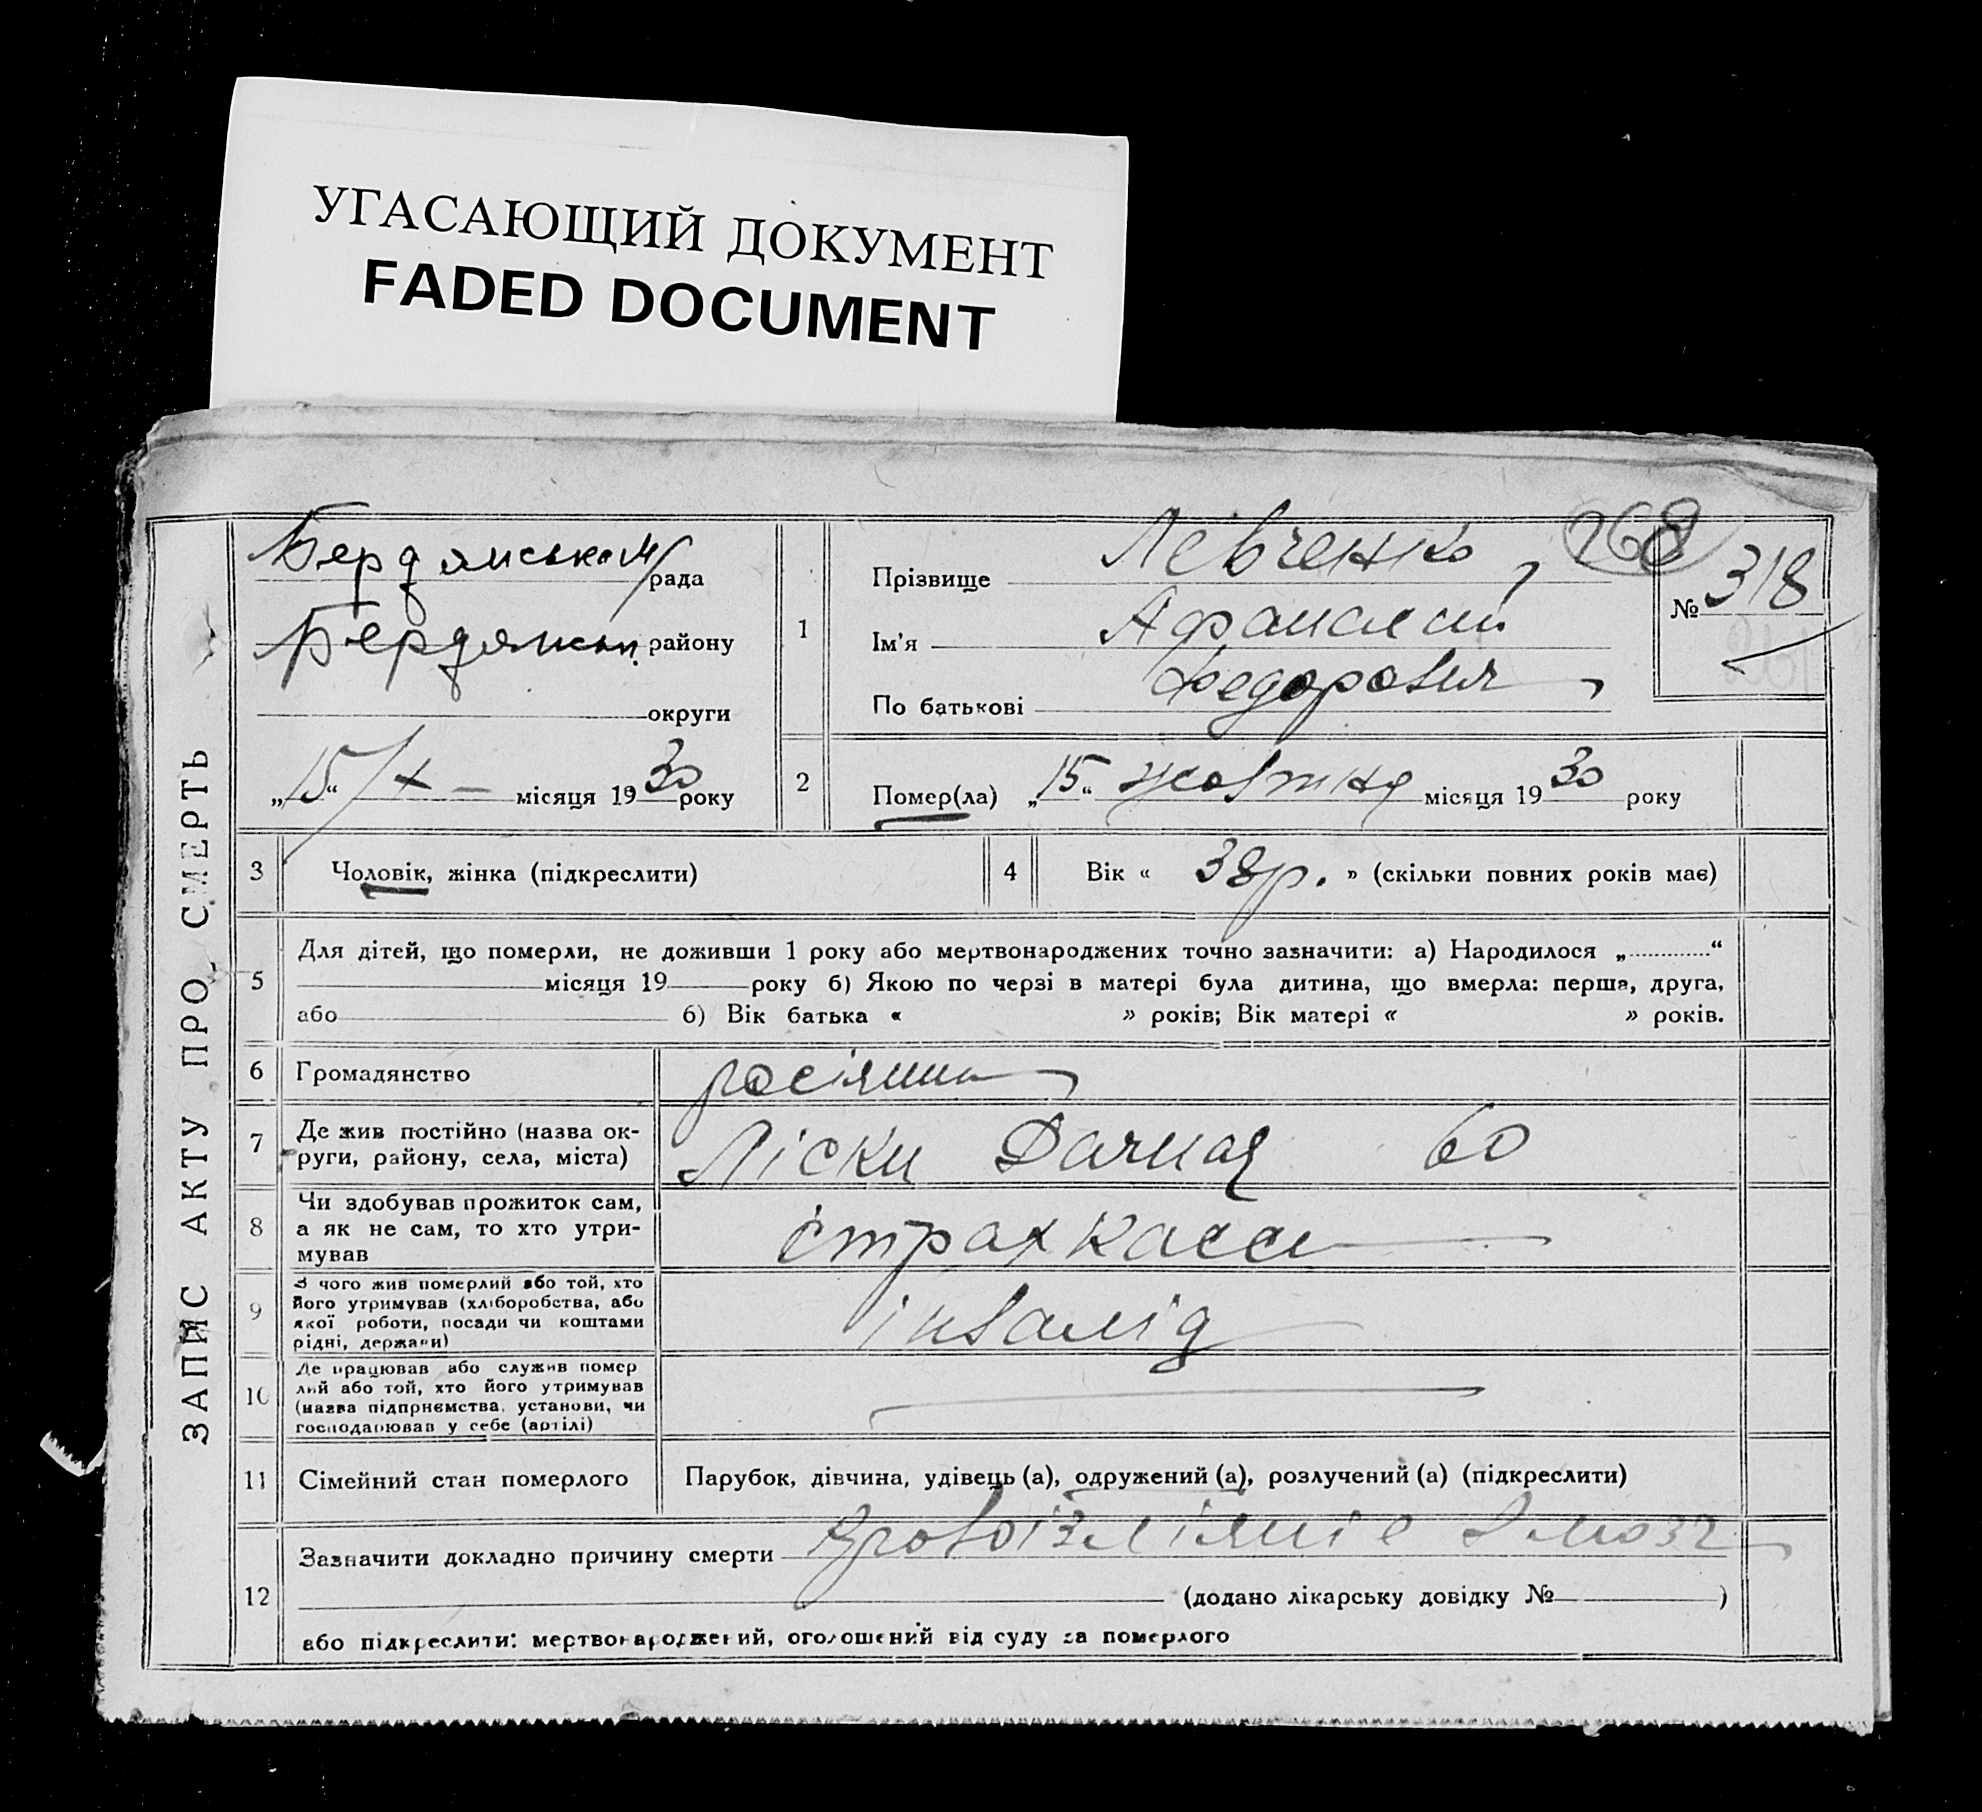 УГАСАЮЩИЙ ДОКУМЕНТ
FADED DOCUMENT
ЗАПИС АКТУ ПРО СМЕРТЬ
Бердянськом/ рада
Бердянськ. району
округи
„15“ X — місяця 1930 року
1
Прізвище Левченко
Ім'я Афанасий
По батькові Федорович
268
№ 318
2
Помер(ла) „15“ жовтня місяця 1930 року
3
Чоловік, жінка (підкреслити)
4
Вік « 38 р. » (скільки повних років має)
5
Для дітей, що померли, не доживши 1 року або мертвонароджених точно зазначити: а) Народилося „ “
місяця 19 року б) Якою по черзі в матері була дитина, що вмерла: перша, друга,
або б) Вік батька « » років; Вік матері « » років.
6
Громадянство
росіянин
7
Де жив постійно (назва ок-
руги, району, села, міста)
Ліски Дачная 60
8
Чи здобував прожиток сам,
а як не сам, то хто утри-
мував
страхкасси
9
З чого жив померлий або той, хто
його утримував (хліборобства, або
якої роботи, посади чи коштами
рідні, держави)
інвалід
10
Де працював або служив помер
лий або той, хто його утримував
(назва підприємства, установи, чи
господарював у себе (артілі)
11
Сімейний стан померлого
Парубок, дівчина, удівець (а), одружений (а), розлучений (а) (підкреслити)
12
Зазначити докладно причину смерти кровоізліяніе в мозг
(додано лікарську довідку № )
або підкреслити: мертвонароджений, оголошений від суду за померлого